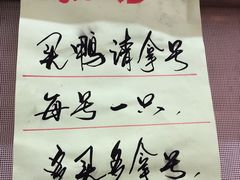 买鸭请拿号
每号一只,
多买多拿号,